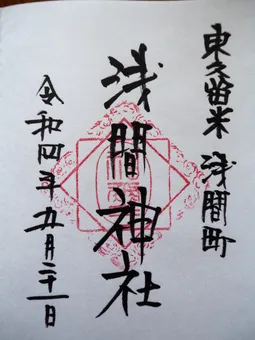 東久留米 浅間町
浅間神社
令和四年 五月二十一日